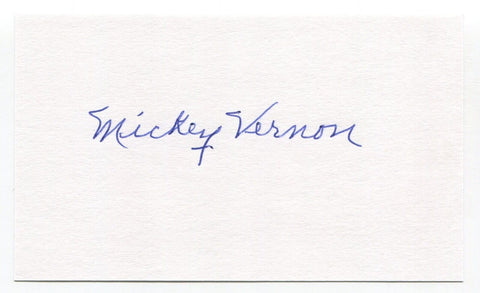 Mickey Vernon